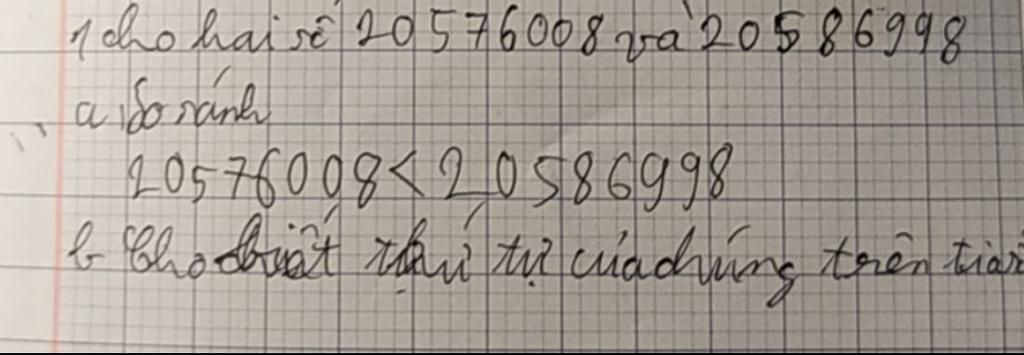 1 cho hai số 20576008 và 20586998
a, So sánh
20576008 < 20586998
b Cho biết thứ tự của chúng trên